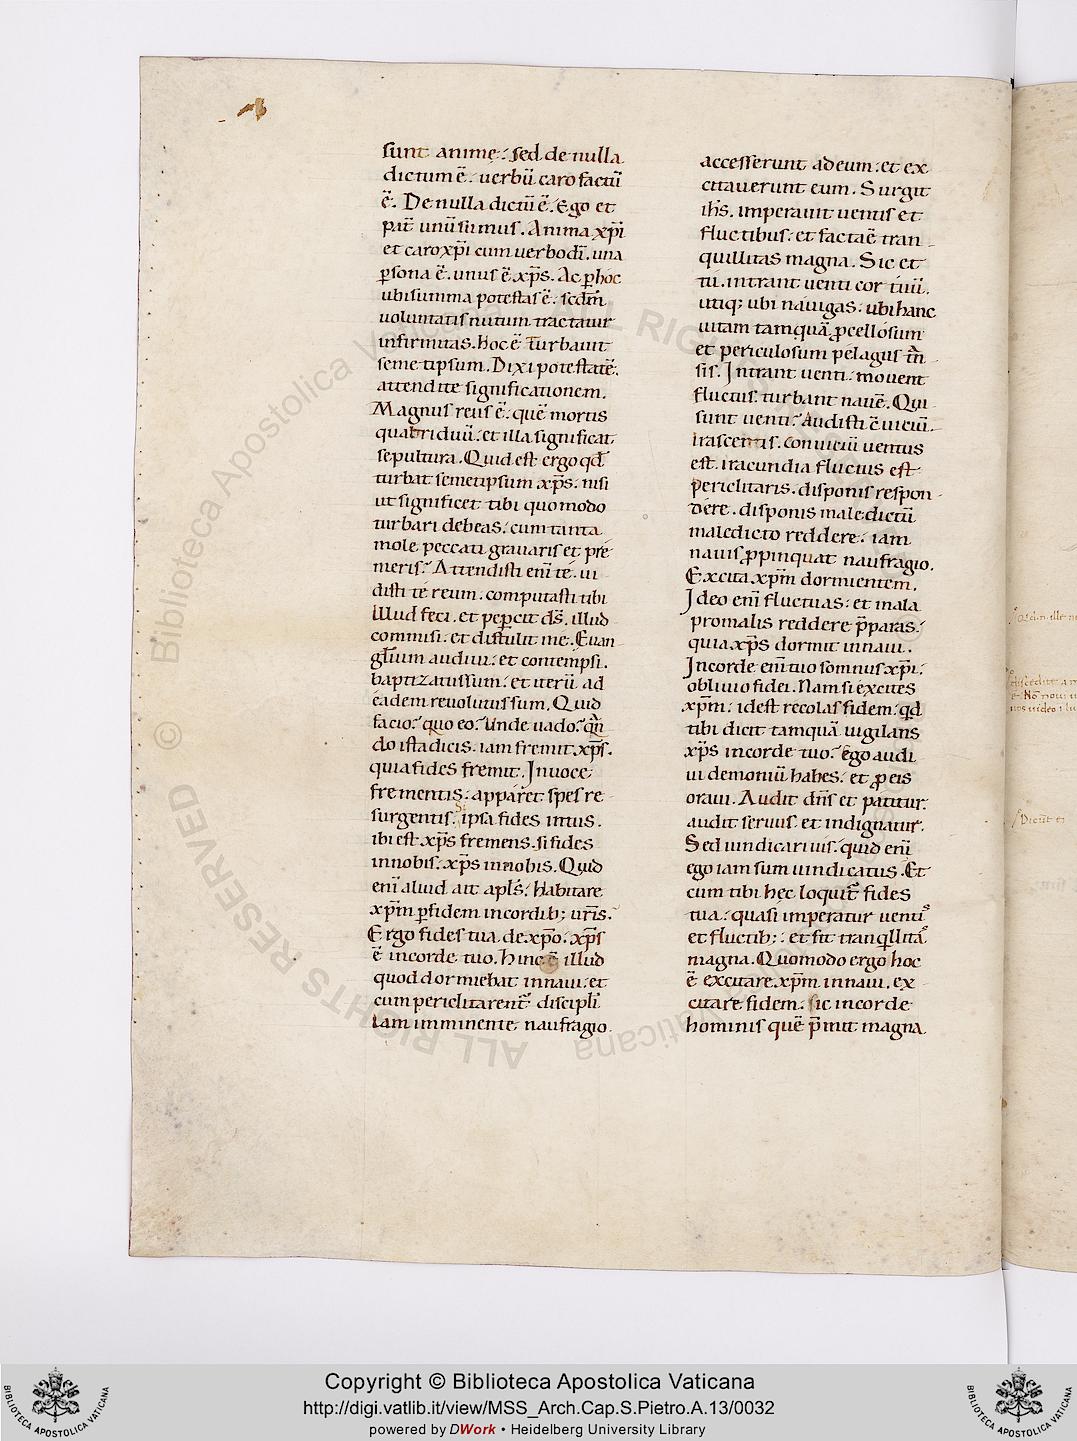 sunt animę. sed de nulla
dictum ē. uerbū caro factū
ē. De nulla dictū ē. Ego et
pat̄ unū sumus. Anima xp̄i
et caro xp̄i cum uerbo dī. una
ꝑsona ē. unus ē xp̄s. Ac ꝑ hoc
ubi summa potestas ē. scdm̄
uoluntatis nutum tractatur
infirmitas. hoc ē turbauit
semetipsum. Dixi potestatē.
attendite significationem.
Magnus reus ē. quē mortis
quatriduū. et illa significat
sepultura. Quid est ergo qd̄
turbat semetipsum xp̄s. nisi
ut significet tibi quomodo
turbari debeas. cum tanta
mole peccati grauaris et pre
meris? Attendisti enī te. ui
disti te reum. computasti tibi
Illud feci. et pepercit ds̄. illud
commisi. et distulit me. Euan
gl̄ium audiui. et contempsi.
baptizatus sum. et iterū ad
eadem reuolutus sum. Quid
facio? quo eo? Unde uado? qn̄
do ista dicis. iam fremit xp̄s.
quia fides fremit. In uoce
frementis. apparet spes re
surgentis. Si ipsa fides intus.
ibi est xp̄s fremens. si fides
in nobis. xp̄s in nobis. Quid
enī aliud ait apl̄s. habitare
xp̄m ꝑ fidem in cordib; ur̄is.
Ergo fides tua de xp̄o. xp̄s
ē in corde tuo. hinc ē illud
quod dormiebat in naui. et
cum periclitarent̄ discipli
Iam imminente naufragio.
accesserunt ad eum. et ex
citauerunt eum. Surgit
ih̄s. imperauit uentis et
fluctibus. et facta ē tran
quillitas magna. Sic et
tū. intrant uenti cor tuū.
utiq; ubi nauigas. ubi hanc
uitam tamquā ꝓcellosum
et periculosum pelagus trā
sis. Intrant uenti. mouent
fluctus. turbant nauē. Qui
sunt uenti? Audisti c̄uiciū.
irasceris. conuiciū uentus
est. iracundia fluctus est
periclitaris. disponis respon
dere. disponis maledictū
maledicto reddere. iam
nauis ꝓpinquat naufragio.
Excita xp̄m dormientem.
Ideo enī fluctuas. et mala
pro malis reddere p̄paras.
quia xp̄s dormit in naui.
In corde enī tuo somnus xp̄i.
obliuio fidei. Nam si excites
xp̄m. idest recolas fidem. qd̄
tibi dicit tamquā uigilans
xp̄s in corde tuo? Ego audi
ui demoniū habes. et ꝓ eis
oraui. Audit dn̄s et patitur.
audit seruus. et indignatur.
Sed uindicari uis. quid enī
ego iam sum uindicatus. Et
cum tibi hęc loquit̄ fides
tua. quasi imperatur uentis
et fluctib;. et fit tranqillitas
magna. Quomodo ergo hoc
ē excitare xp̄m in naui. ex
citare fidem. sic in corde
hominis quē p̄mit magna
Copyright © Biblioteca Apostolica Vaticana
http://digi.vatlib.it/view/MSS_Arch.Cap.S.Pietro.A.13/0032
powered by DWork • Heidelberg University Library
BIBLIOTECA APOSTOLICA VATICANA
BIBLIOTECA APOSTOLICA VATICANA
© Biblioteca Apostolica Vaticana · ALL RIGHTS RESERVED